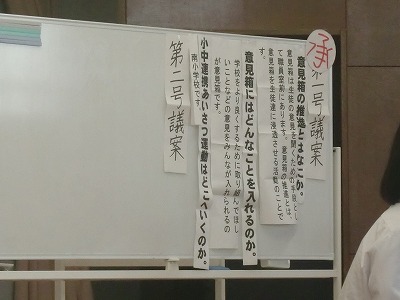 承
第一号議案
意見箱の推進とはなにか。
意見箱は生徒の意見を聞くための手段とし
て職員室前にあります。意見箱の推進とは、
意見箱を生徒達に浸透させる活動のことで
す。
意見箱にはどんなことを入れるのか。
学校をより良くするために取り組んでほし
いことなどの意見をみんなが入れられるの
が意見箱です。
小中連携あいさつ運動はどこへいくのか。
南小学校です。
第二号議案